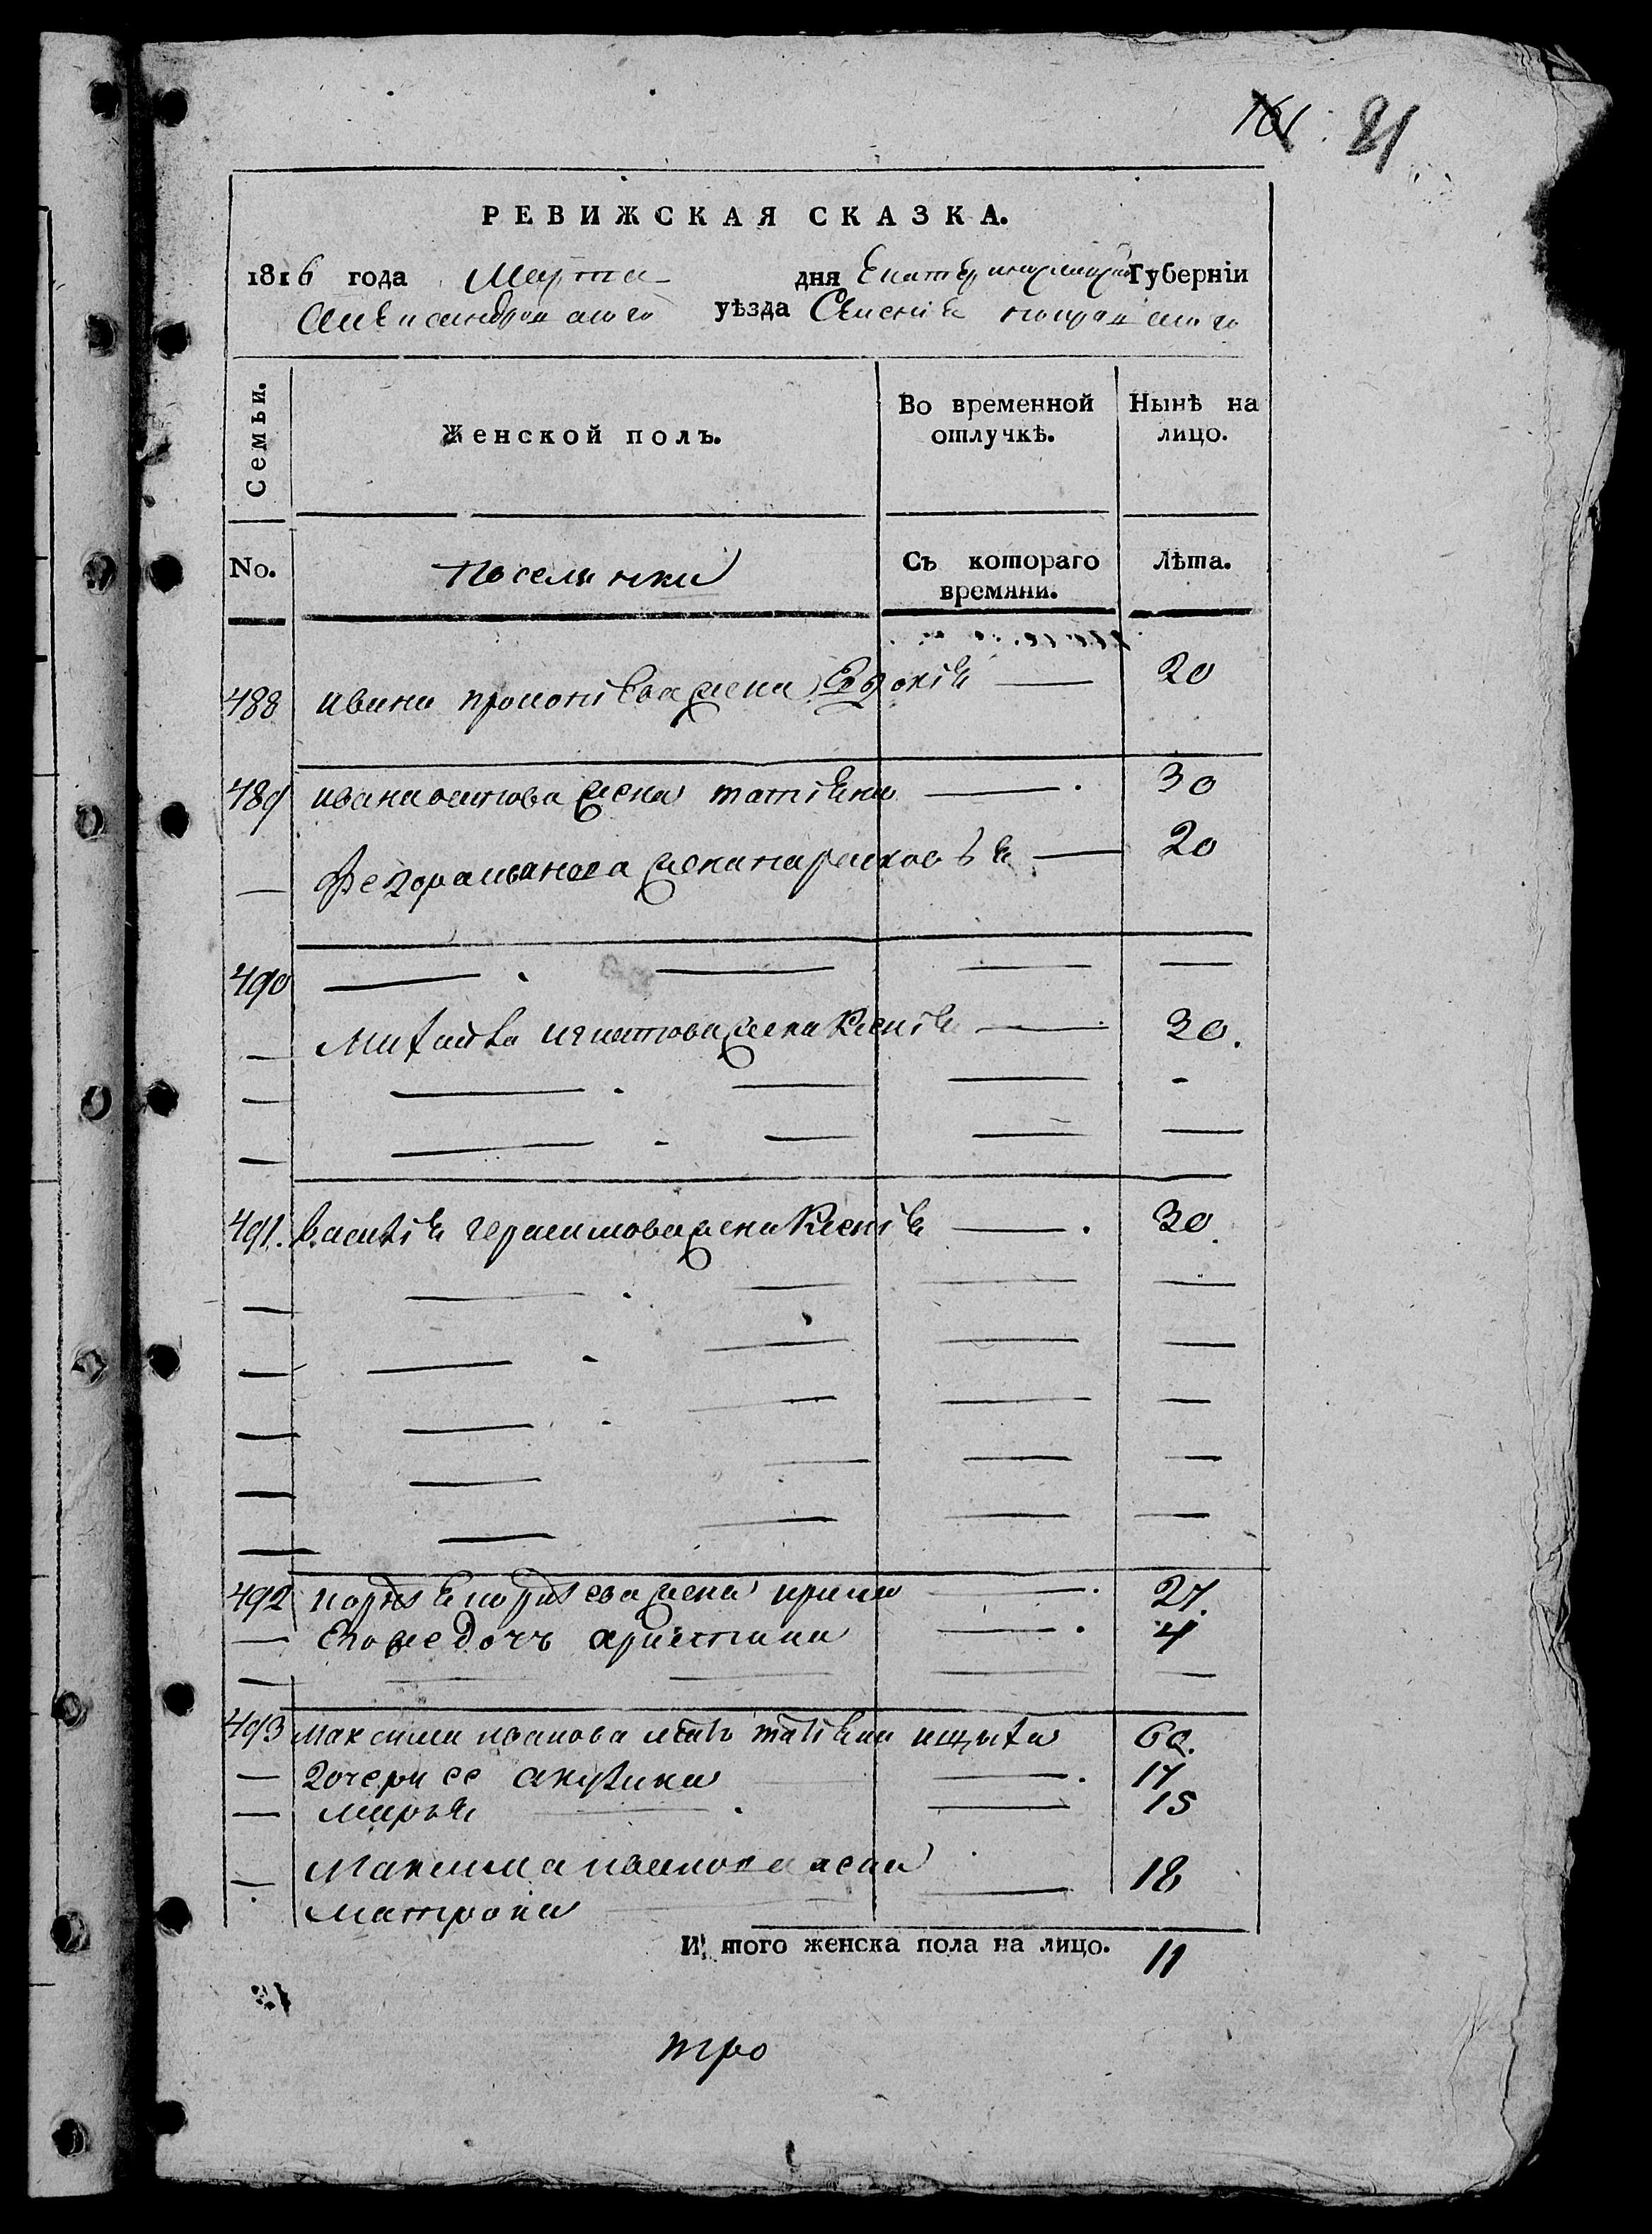 161. 21
РЕВИЖСКАЯ СКАЗКА.
1816 года Марта дня Екатеринославской Губерніи
Александровскаго уѣзда Селенія Покровскаго
Семьи.
Женской полъ.
Во временной отлучкѣ.
Нынѣ на лицо.
No.
Поселянки
Съ котораго времяни.
Лѣта.
488 ивана прокопіева жена Евдокія — 20
489 ивана осипова жена татіяна — 30
— Федора иванова жена парасковья — 20
490 — — — —
— Михайла игнатова жена Ксенія — 30.
— — — — -
— — — — —
491. василія герасимова жена Ксенія — 30.
— — — — —
— — — — —
— — — — —
— — — — —
— — — — —
492 жена ирина — 27.
— Егоже дочь христина — 4
— — — — —
493 Максима иванова мать татіяна 60.
— дочери ее акулина — 17
— марья — 15
— Максима иванова жена
матрона — 18
И того женска пола на лицо. 11
тро